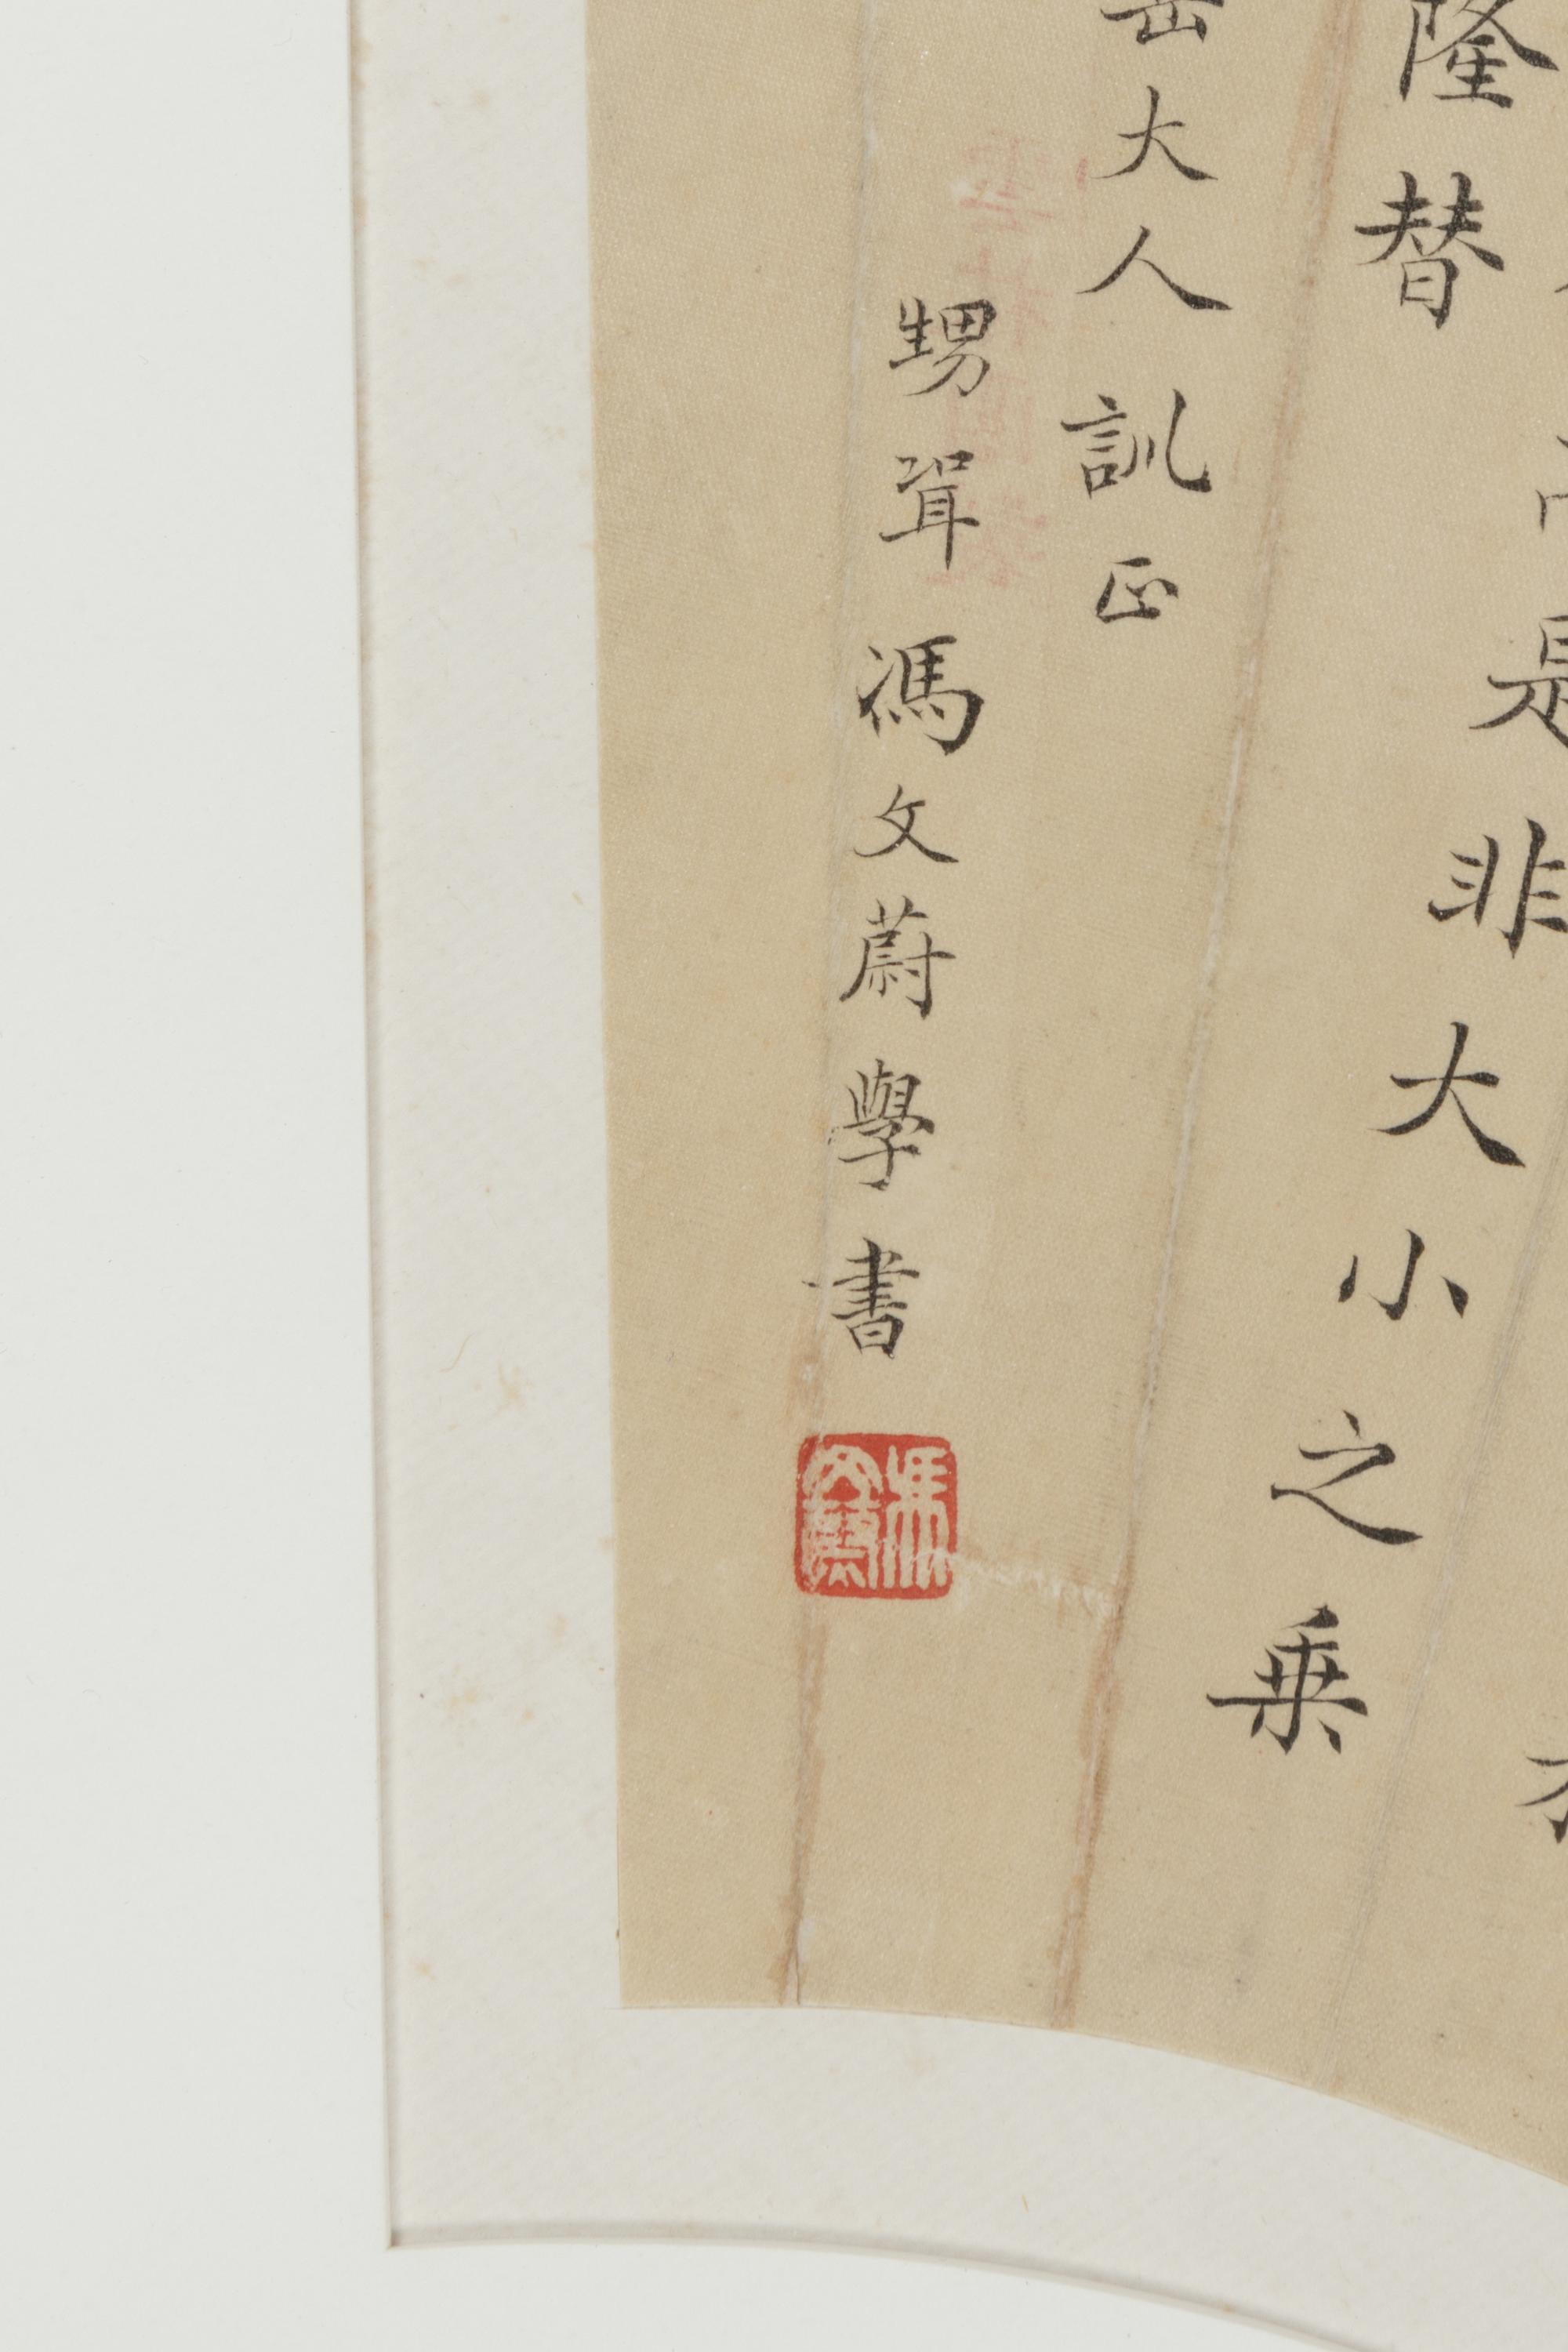 是非大小之乘
隆替
岳大人訓正
甥壻馮文蔚學書
馮文蔚